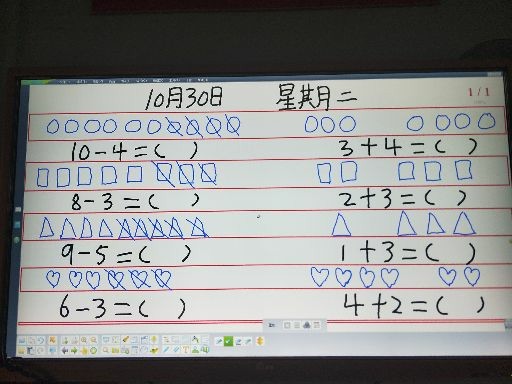 10月30日 星期二
1/1
10-4=( ) 3+4=( )
8-3=( ) 2+3=( )
9-5=( ) 1+3=( )
6-3=( ) 4+2=( )